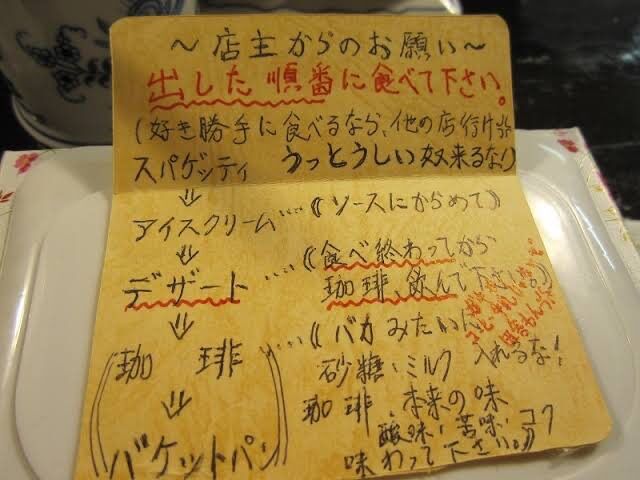 ～店主からのお願い～
出した順番に食べて下さい。
(好き勝手に食べるなら、他の店行け!!
スパゲッティ うっとうしい奴来るな!)
⇓
アイスクリーム…《ソースにからめて》
⇓
デザート…《食べ終わってから
珈琲、飲んで下さい。》
⇓
珈琲…《バカみたいに
砂糖・ミルク 入れるな!
⇓
珈琲.本来の味
酸味・苦味・コク
バケットパン
味わって下さい。》